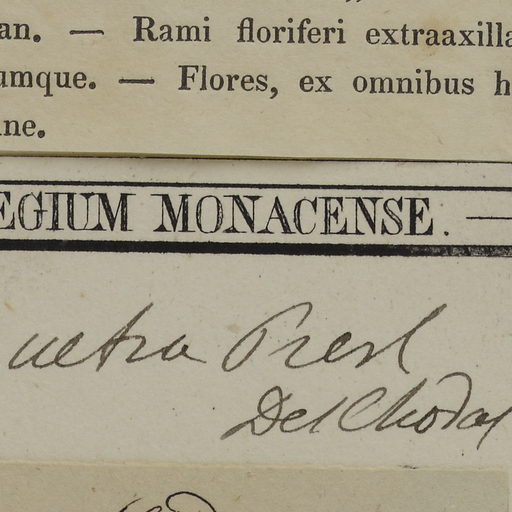 an. — Rami floriferi extraaxilla
umque. — Flores, ex omnibus h
ne.
EGIUM MONACENSE.
uetra Presl
Det Chodat